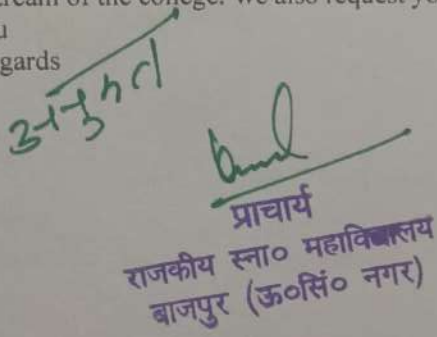 stream of the college. We also request yo
u
gards
अनुमत
प्राचार्य
राजकीय स्ना० महाविद्यालय
बाजपुर (ऊ०सिं० नगर)